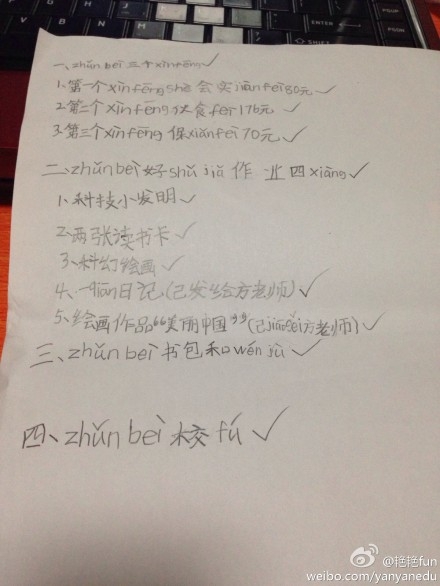 一、zhǔn bèi 三个 xìn fēng ✓
1.第一个xìn fēng shè 会实jiàn fèi 80元 ✓
2.第二个xìn fēng 伙食fèi 176元 ✓
3.第三个xìn fēng 保xiǎn fèi 70元 ✓
二、zhǔn bèi 好 shǔ jià 作业四xiàng ✓
1、科技小发明 ✓
2、两张读书卡 ✓
3、科幻绘画 ✓
4、一piān日记(已发给方老师) ✓
5、绘画作品“美丽中国”(已jiāo gěi方老师) ✓
三、zhǔn bèi 书包和wén jù ✓
四、zhǔn bèi 校fú ✓
@艳艳fun
weibo.com/yanyanedu